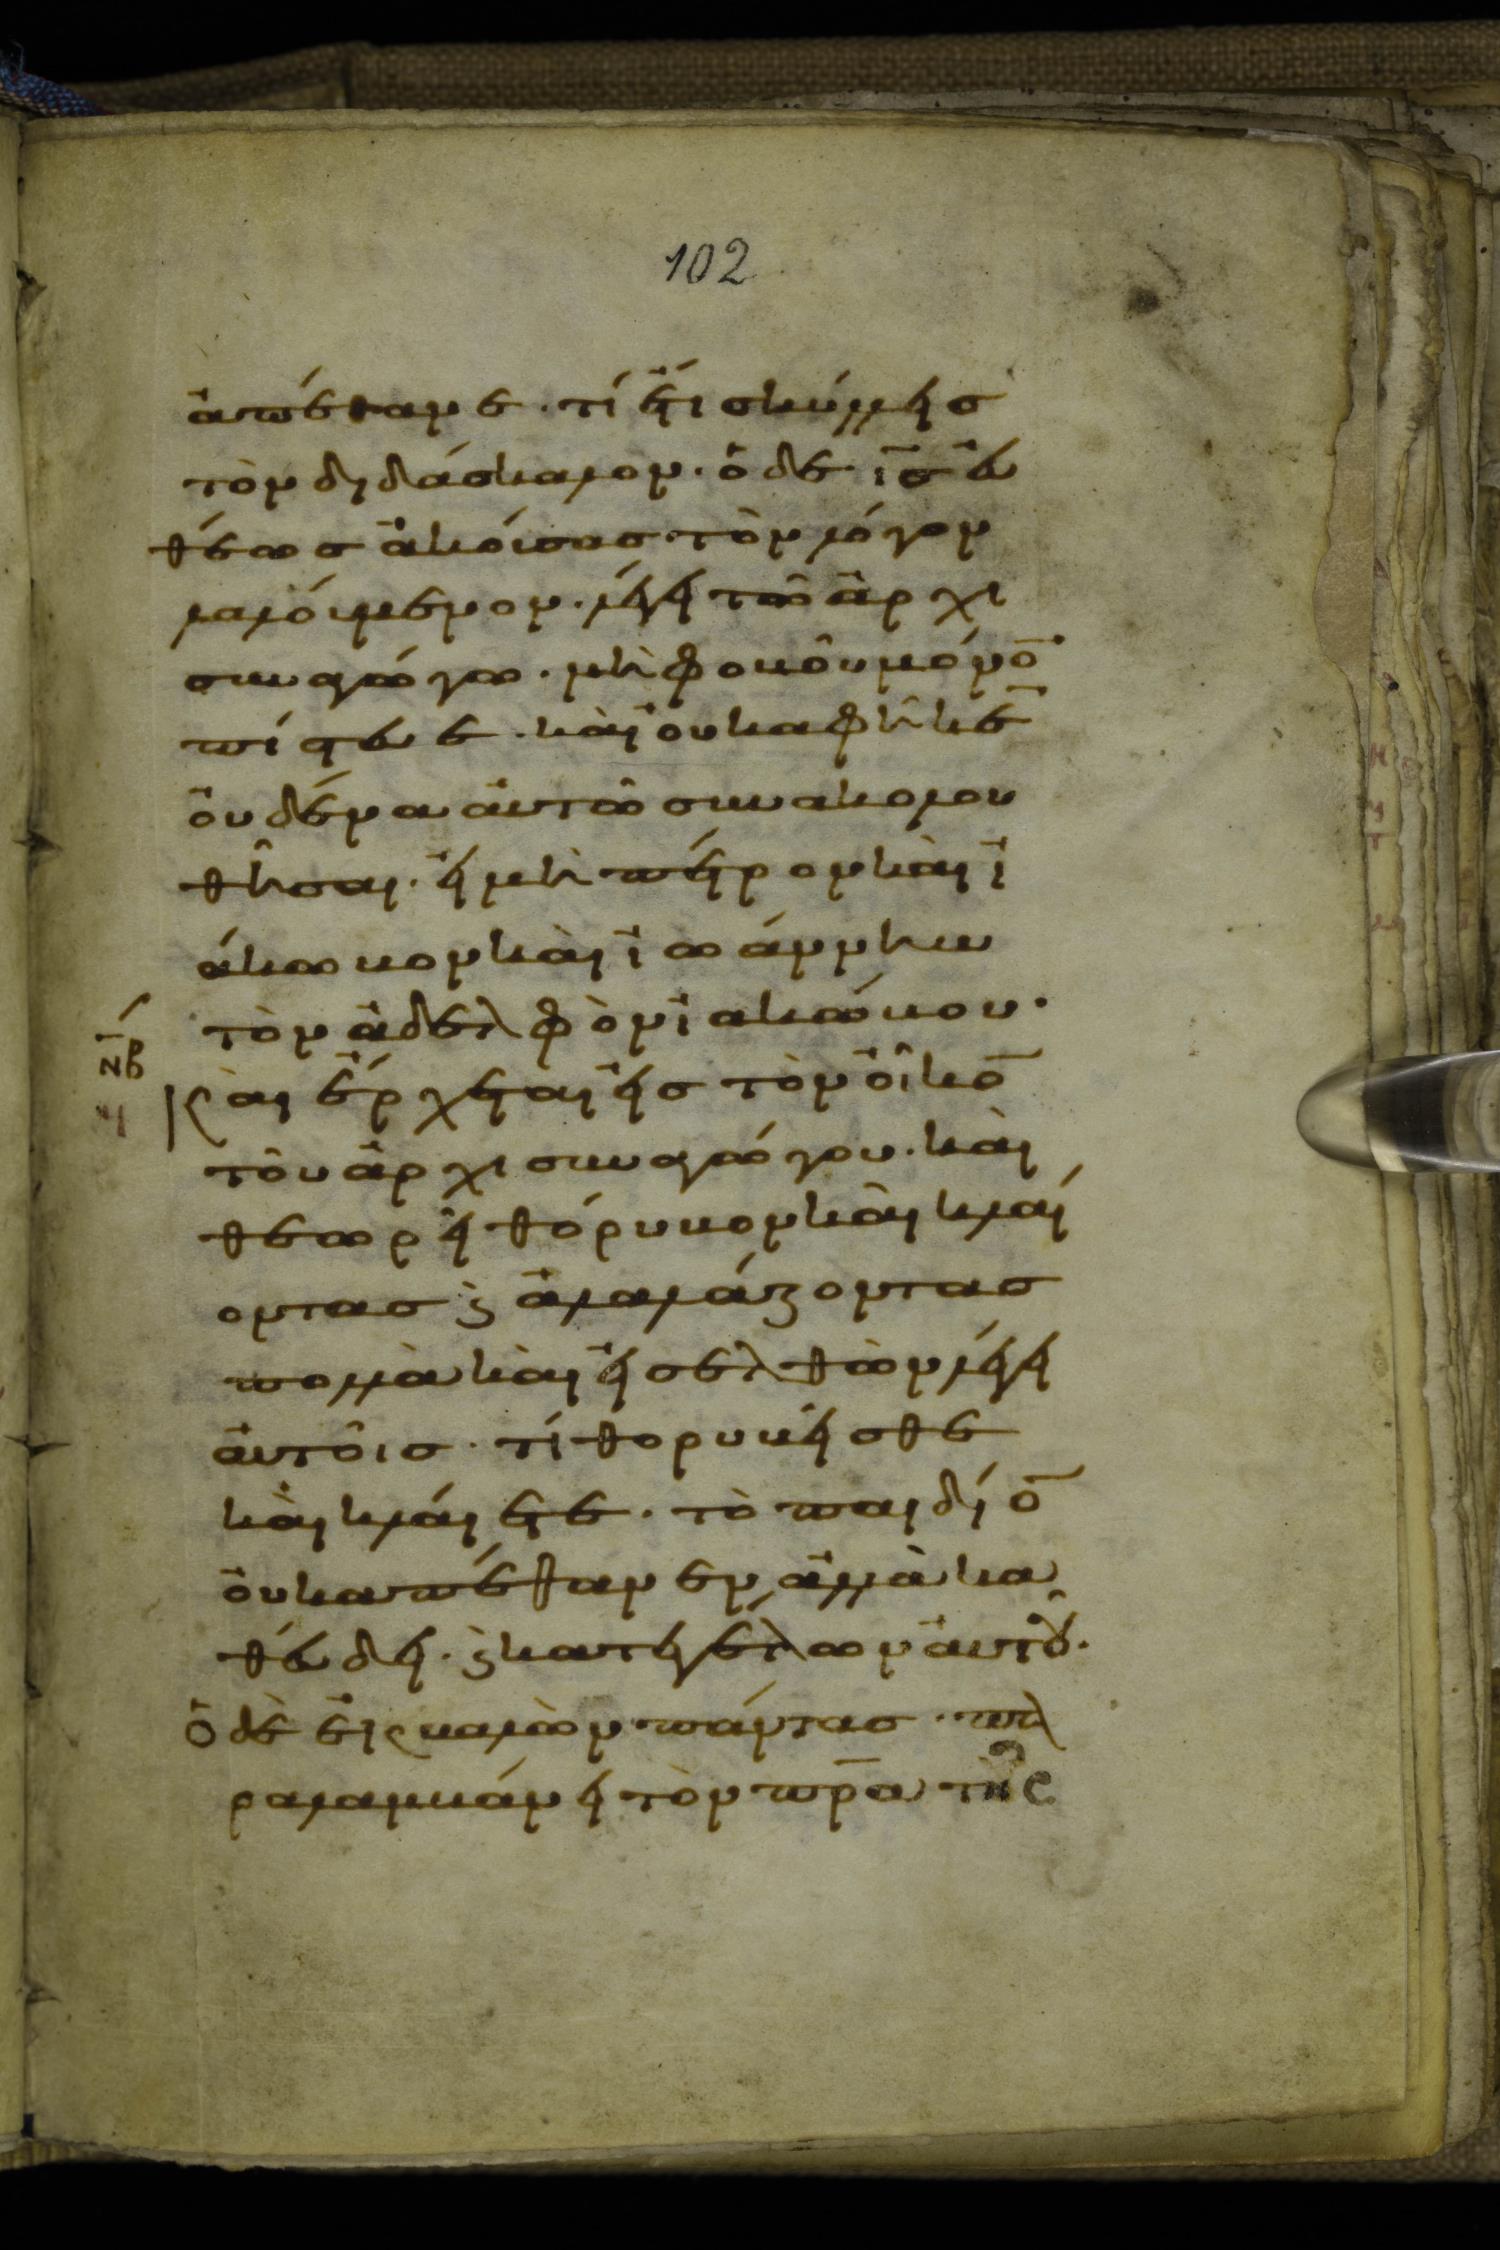 102
ἀπέθανε · τί ἔτι σκύλλεισ
τὸν διδάσκαλον · ὁ δὲ ι̅σ̅ εὐ
θέωσ ἀκούσασ τὸν λόγον
λαλούμενον · λέγει τῶ ἀρχι
συναγώγω · μὴ φοβοῦ μόνο̅
πίστευε · καὶ οὐκ αφῆκε̅
οὐδένα αὐτῶ συνακολου
θῆσαι · εἰ μὴ πέτρον καὶ ϊ
άκωβον καὶ ϊωάννην
τὸν ἀδελφὸν ϊακώβου ·
ν̅β̅
η
Καὶ ἔρχεται εἰσ τὸν οἶκο̅
τοῦ ἀρχισυναγώγου · καὶ
θεωρεῖ θόρυβον καὶ κλαί
οντασ ϗ ἀλαλάζοντασ
πολλὰ καὶ εἰσελθὼν λέγει
αὐτοῖσ · τί θορυβεῖσθε
καὶ κλάιετε · τὸ παιδίο̅
οὐκ απέθανεν, ἀλλὰ κα
θέυδει · ϗ κατεγέλων αὐτοῦ ·
Ὁ δὲ ἐκβαλὼν πάντασ · πα
ραλαμβάνει τὸν π̅ρ̅α τῆς